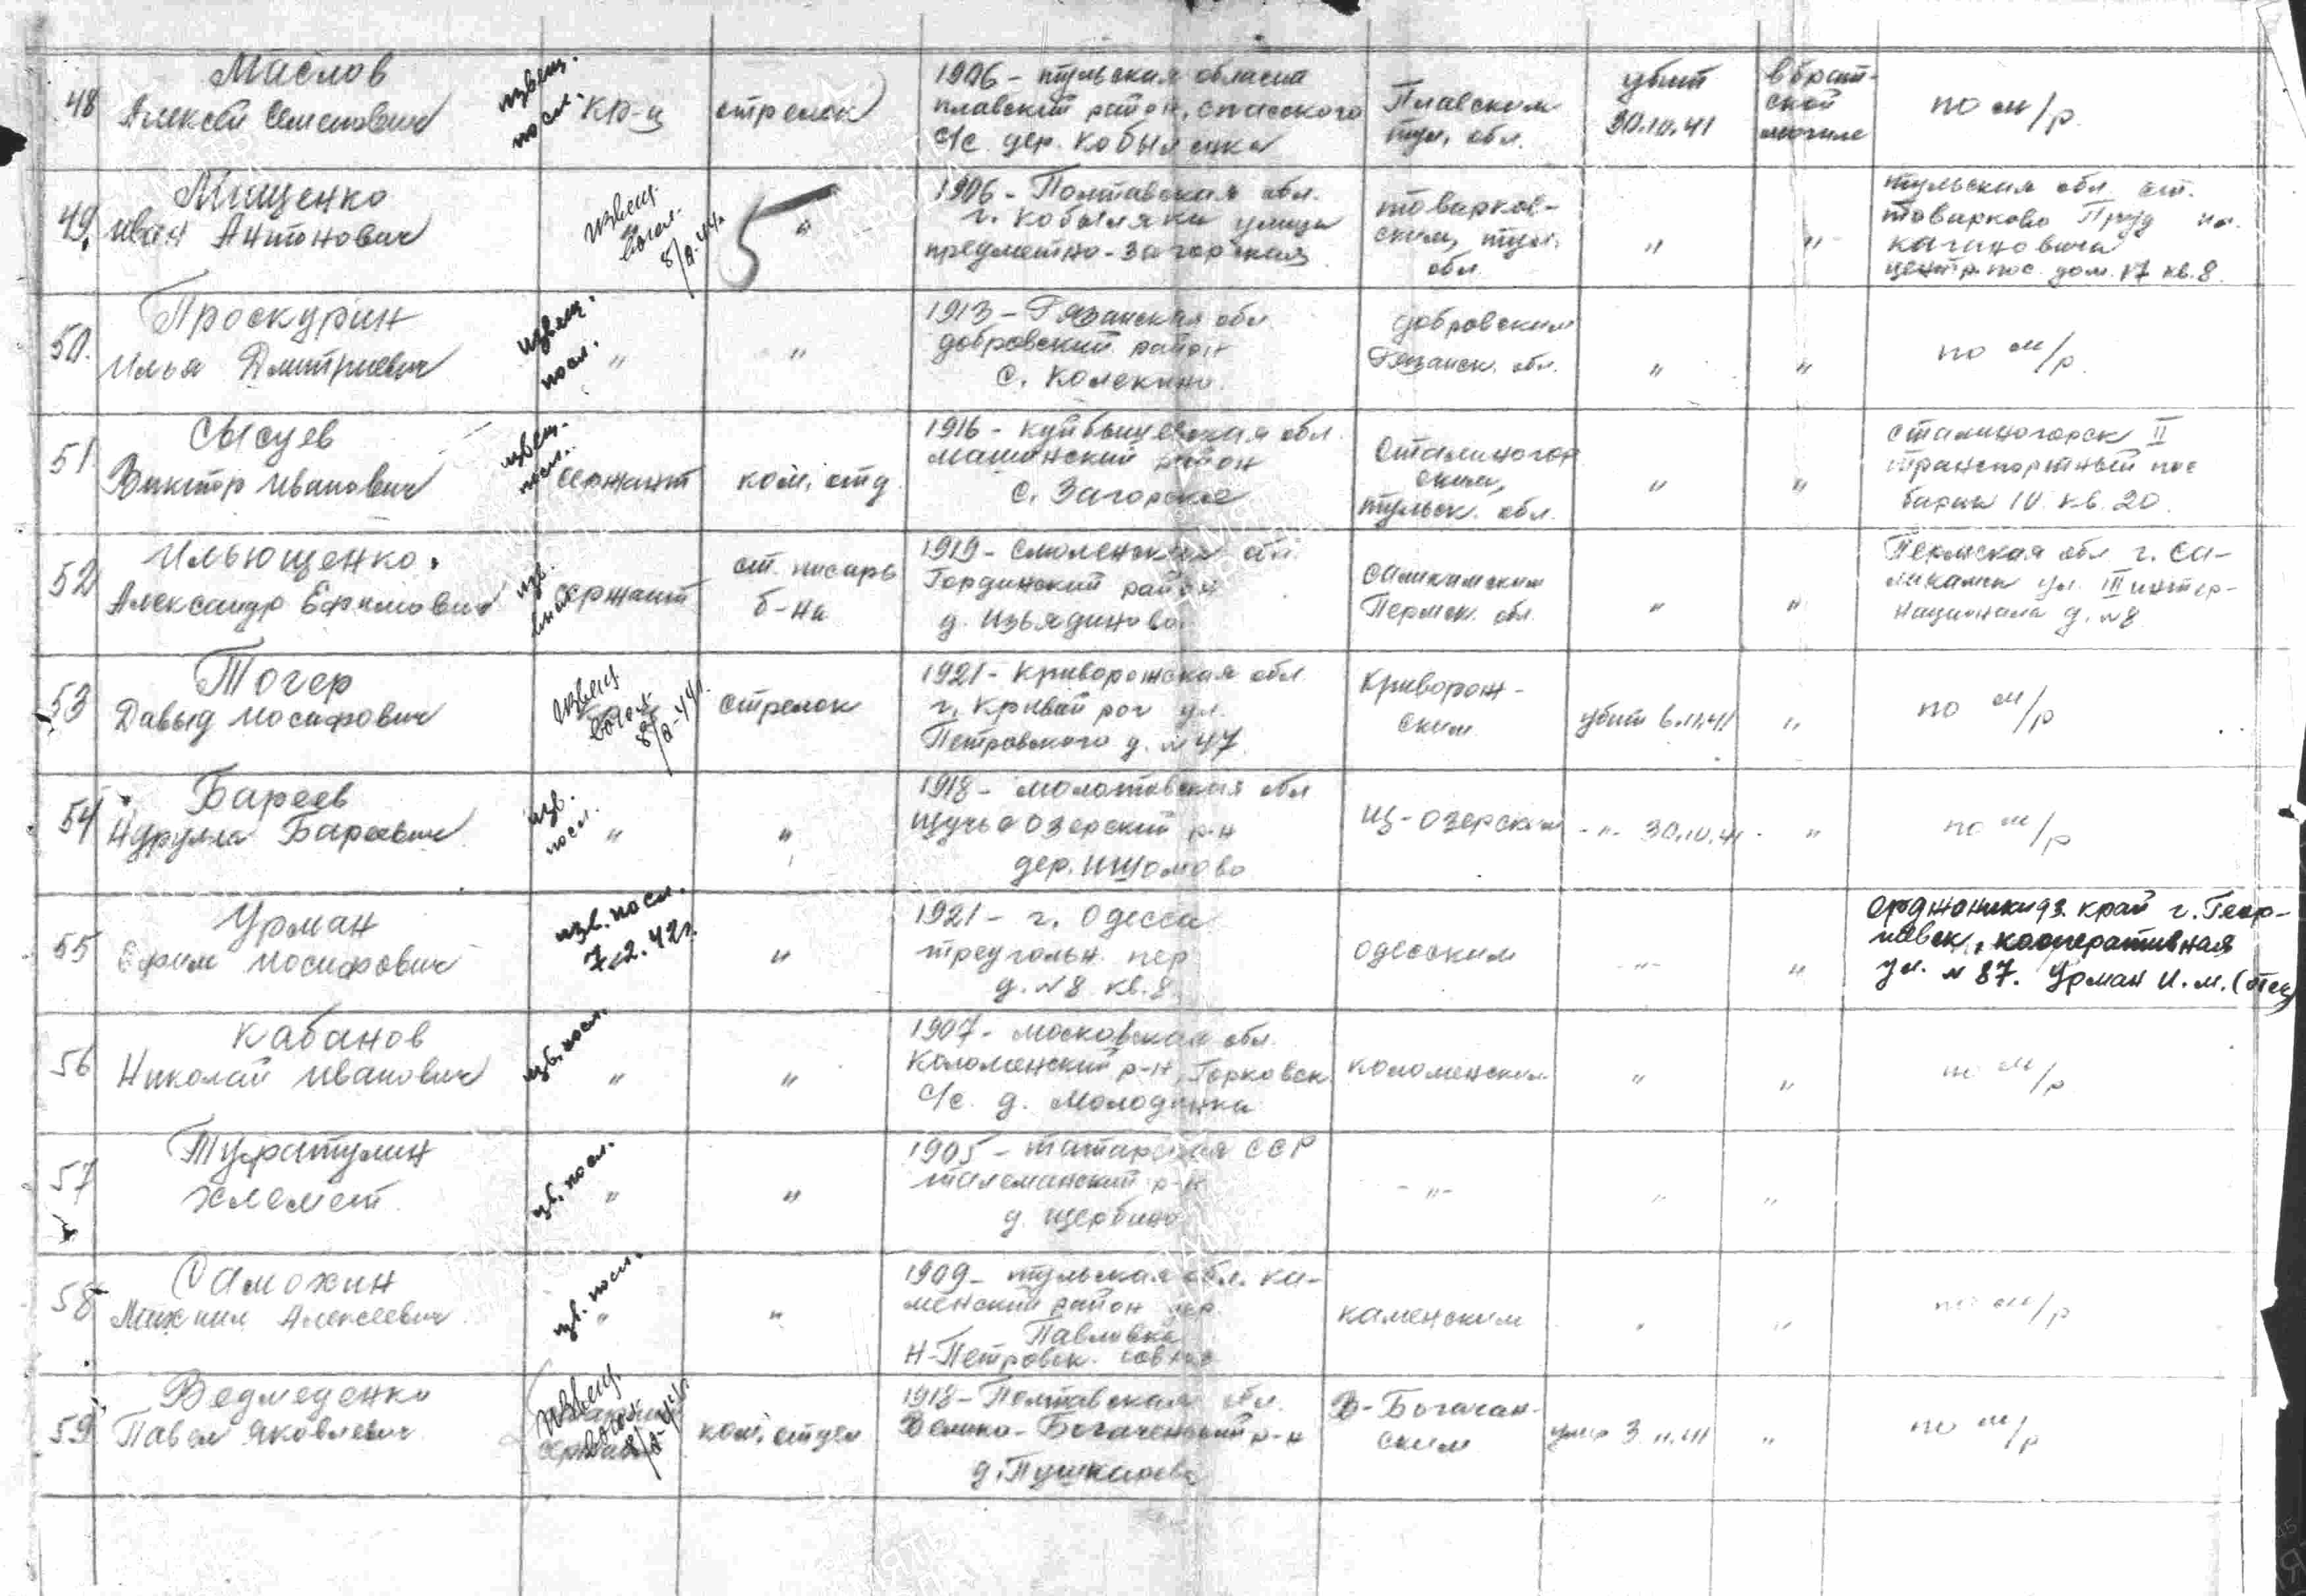 48
Маслов
Алексей Семенович
извещ.
посл.
кр-ц
стрелок
1906 - тульская область
плавский район, спасского
с/с. дер. Кобылинка
Плавским
тул. обл.
убит
30.10.41
в брат-
ской
могиле
по м/р.
49.
Мищенко
Иван Антонович
извещ.
8/II-44.
5
"
1906 - Полтавская обл.
г. Кобыляки улица
предметно-загорская
товарков-
ским, тул.
обл.
"
"
тульская обл. ст.
товарково Пруд
кагановича
центр. пос. дом. 17 кв. 8.
50.
Проскурин
Илья Дмитриевич
извещ.
посл.
"
"
1913 - Рязанская обл
добровский район
с. Колекино.
добровским
Рязанск. обл.
"
"
по м/р.
51
Сысуев
Виктор Иванович
извещ.
посл.
сержант
ком. отд.
1916 - куйбышевская обл.
район
с. Загорское
Сталиногор
ским,
тульск. обл.
"
"
сталиногорск II
транспортный пос
барак 10. кв. 20.
52
Ильющенко.
Александр Ефимович
изв.
сержант
ст. писарь
б-на
1919 - смоленская обл.
район
д. Изъядиново.
соликамским
Пермск. обл.
"
"
Пермская обл г. Со-
ликамск ул. III интер-
национала д. №8
53
Тогер
Давыд Иосифович
извещ
8/II-44г.
стрелок
1921 - Криворожская обл.
г. Кривой рог ул.
Петровского д. №47.
Криворож-
ским
убит 6.11.41
"
по м/р
54
Бареев
Нурулла Бареевич
изв.
посл.
"
"
1918 - молотовская обл
щучье озерский р-н
дер. Ишомово
щ-озерским
-"- 30.10.41
"
по м/р
55
Урман
Ефим Иосифович
изв. посл.
7.2.42г.
"
1921 - г. Одесса
треугольн. пер
д. №8 кв. 8.
одесским
-"-
"
орджоникидз. край г. Геор-
гиевск, кооперативная
ул. №87. Урман И.М. (отец)
56
Кабанов
Николай Иванович
изв. посл.
"
"
1907 - московская обл.
Коломенский р-н, Горковск.
с/с. д. Молодинки
коломенским
"
"
по м/р
57
Туфатулин
Хлемет.
изв. посл.
"
"
1905 - татарская ССР
р-н
д. Щербино
-"-
"
"
58
Самохин
Михаил Алексеевич
изв. посл.
"
"
1909 - тульская обл. ка-
менский район дер.
Павловка
Н-Петровск. совхоз
каменским
"
"
по м/р
59
Ведмеденко
Павел Яковлевич
извещ.
8/II-44г.
ком. отдел
1918 - Полтавская обл.
Велико-Богаченский р-н
д. Пушкарева
В-Богачан-
ским
умер 3.11.41
"
по м/р